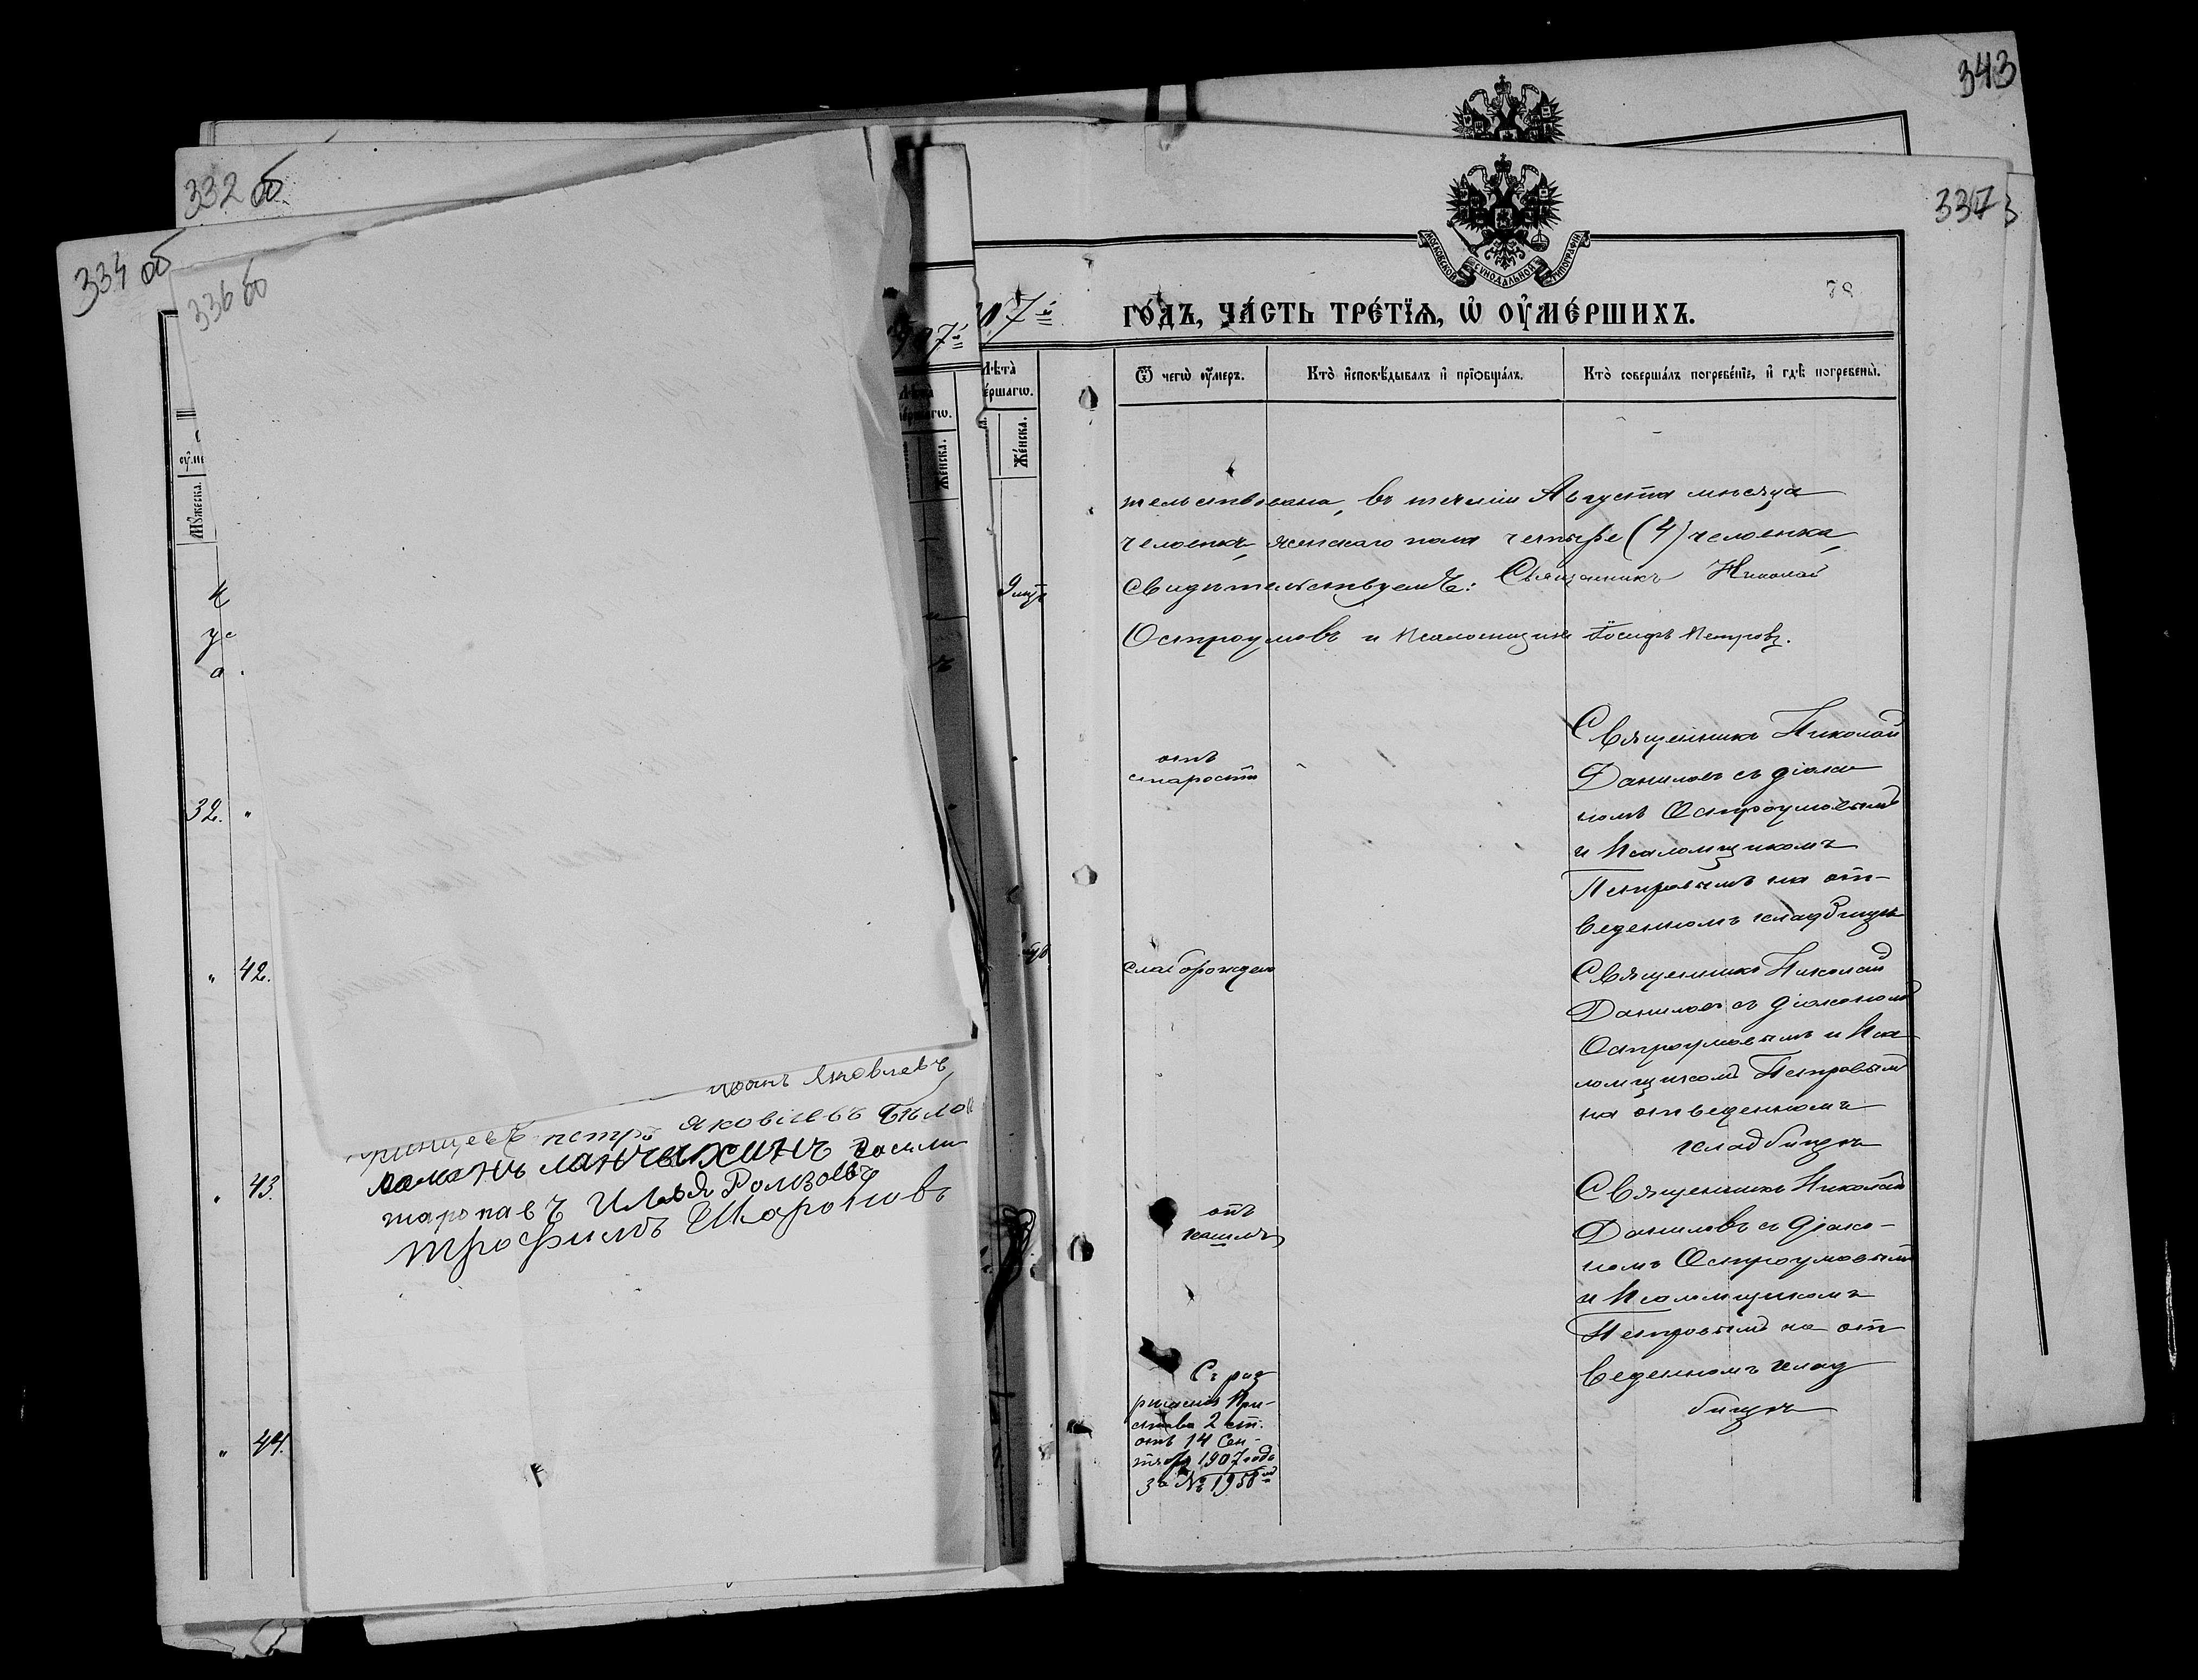 343
332 об
337
334 об
336 об
МОСКОВСКОЙ СѴНОДАЛЬНОЙ ТИПОГРАФІИ
907й
7й
го́дъ, ча́сть тре́тїѧ, ѡ҆ ᲂу҆ме́ршихъ.
Мꙋ́жеска.
Же́нска.
Же́нска.
Ѿ чегѡ̀ ᲂу҆́меръ.
Кто̀ и҆сповѣ́дывалъ и҆ прїѡбща́лъ.
Кто̀ соверша́лъ погребе́нїе, и҆ гдѣ̀ погребены̀.
тельствована, въ течении Августа месяца
человѣкъ, женскаго пола четыре (4) человека,
свидѣтельствуемъ: Священникъ Николай
Остроумовъ и Псаломщикъ Іосифъ Петровъ.
32.
42.
43.
44.
отъ
старости
Священникъ Николай
Даниловъ съ діако
номъ Остроумовымъ
и Псаломщикомъ
Петровымъ на от-
веденномъ кладбищѣ
слаборожден
Священникъ Николай
Даниловъ съ діакономъ
Остроумовымъ и Пса
ломщикомъ Петровымъ
на отведенномъ
кладбищѣ
отъ
кашля
Священникъ Николай
Даниловъ съ діако-
номъ Остроумовымъ
и Псаломщикомъ
Петровымъ на от
веденномъ клад
бищѣ
Съ раз
рѣшенія При-
става 2 ст.
отъ 14 Сен-
тября 1907 года
за № 1958
Яковлевъ
петръ Яковлевъ
Илья
трофимъ